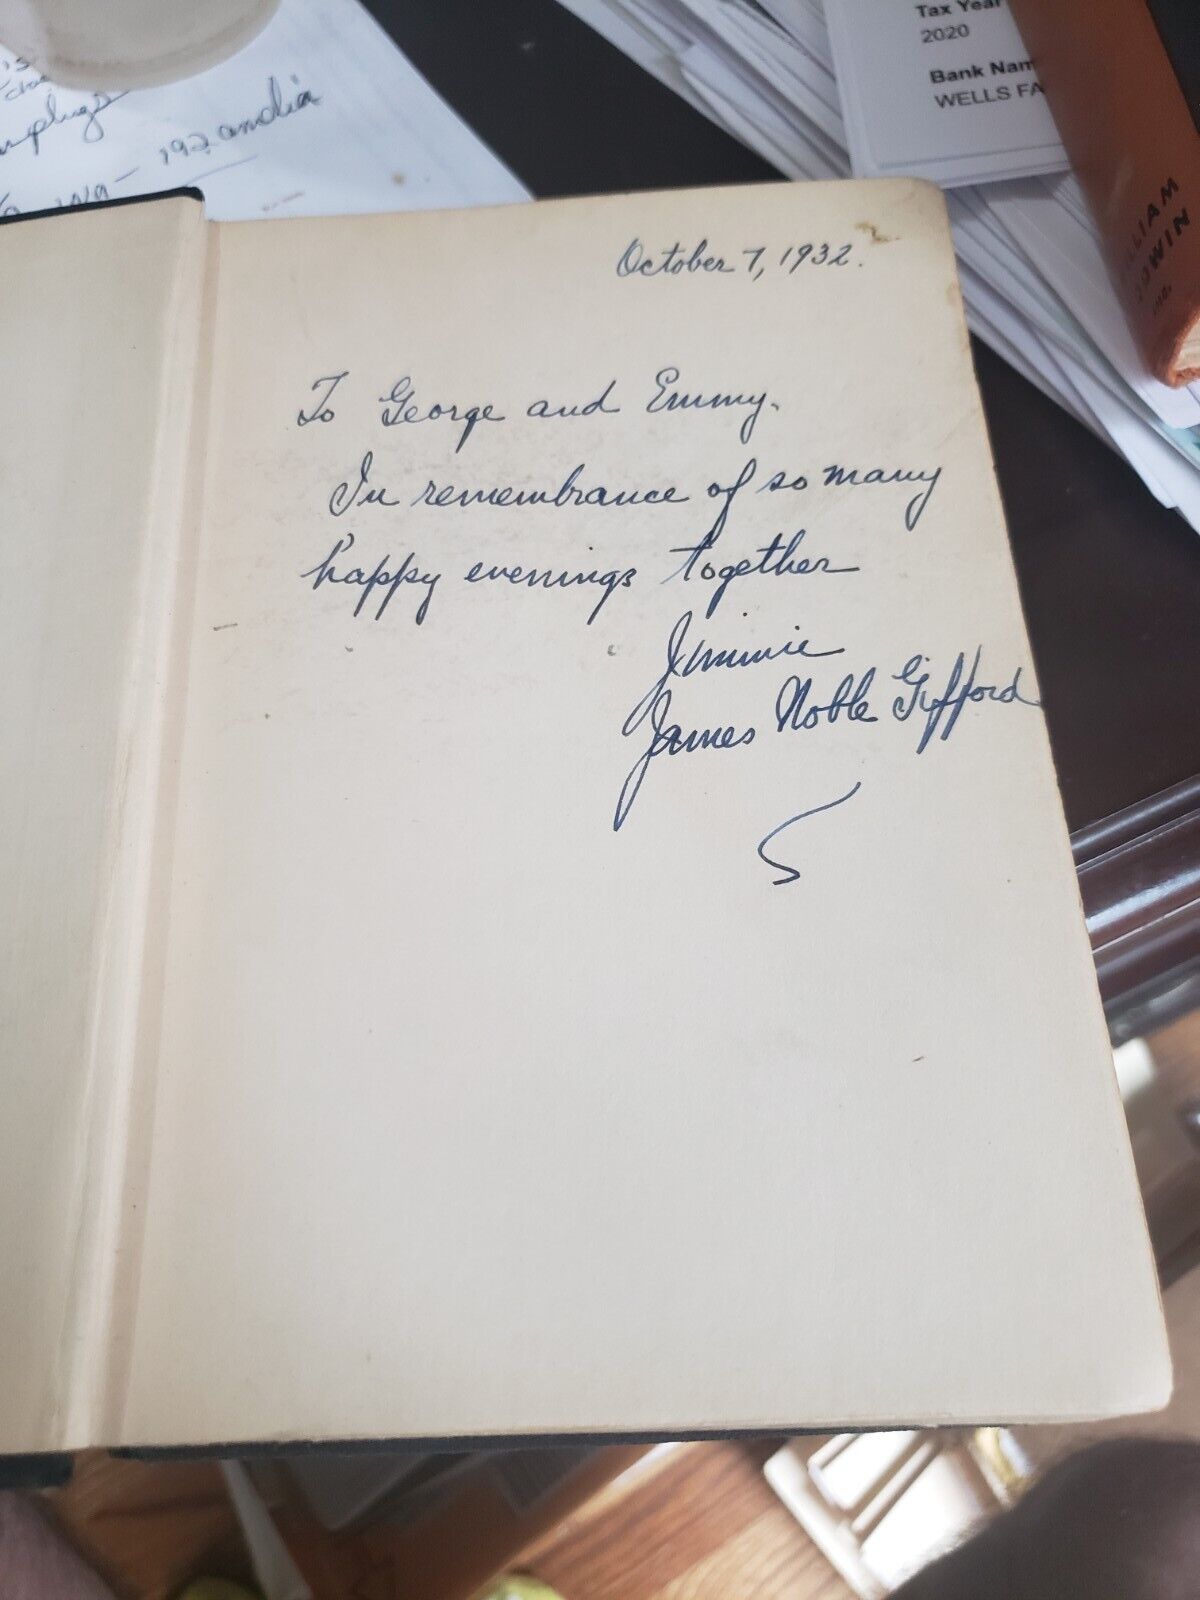 Tax Year
2020
Bank Nam
WELLS FA
192
October 7, 1932.
To George and Emmy.
In remembrance of so many
happy evenings together
Jimmie
James Noble Gifford